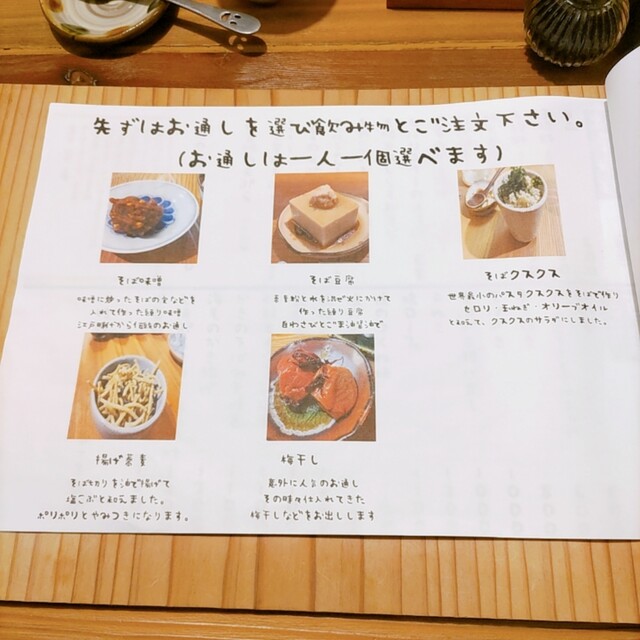 先ずはお通しを選び飲み物とご注文下さい。
(お通しは一人一個選べます)
そば味噌
味噌に炒ったそばの実などを
入れて作った練り味噌
江戸時代から伝わるお通し
そば豆腐
そば粉と水を混ぜ火にかけて
作った練り豆腐
白わさびとごま油醤油で
そばクスクス
世界最小のパスタクスクスをそばで作り
セロリ・玉ねぎ・オリーブオイル
と和えて、クスクスのサラダにしました。
揚げ蕎麦
そば切りを油で揚げて
塩こぶと和えました。
ポリポリとやみつきになります。
梅干し
意外に人気のお通し
その時々仕入れてきた
梅干しなどをお出しします